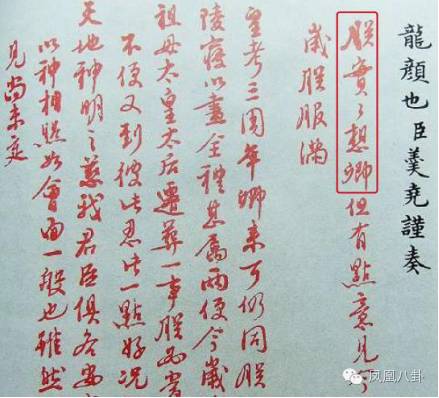 龍顏也臣羹堯謹奏
朕實々想卿但有點意見今
歲朕服滿
皇考三周年卿来可仍同朕
陵寢以盡全禮甚屬兩便今歲
祖母太皇太后遷葬一事朕
不便又到彼此忍此一點好况
天地神明之慈我君臣俱各安
以神相照如會面一般也雖然
見尚未定
凤凰八卦